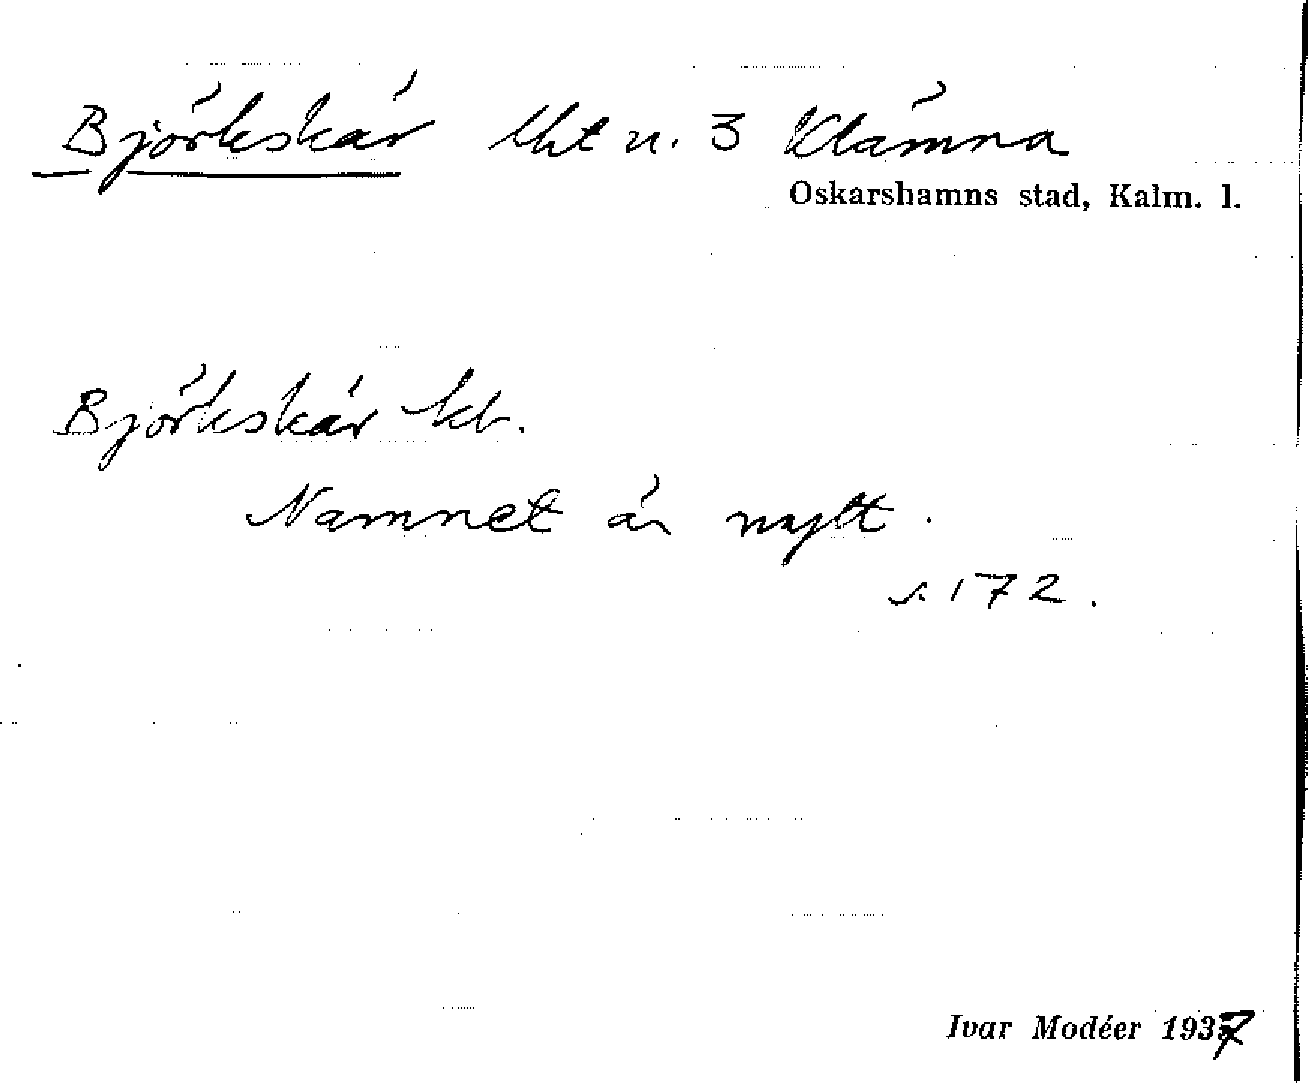 Björkskär kkt n. 3 Klämna
Oskarshamns stad, Kalm. l.
Björkskär kb.
Namnet är nytt.
s. 172.
Ivar Modéer 1937